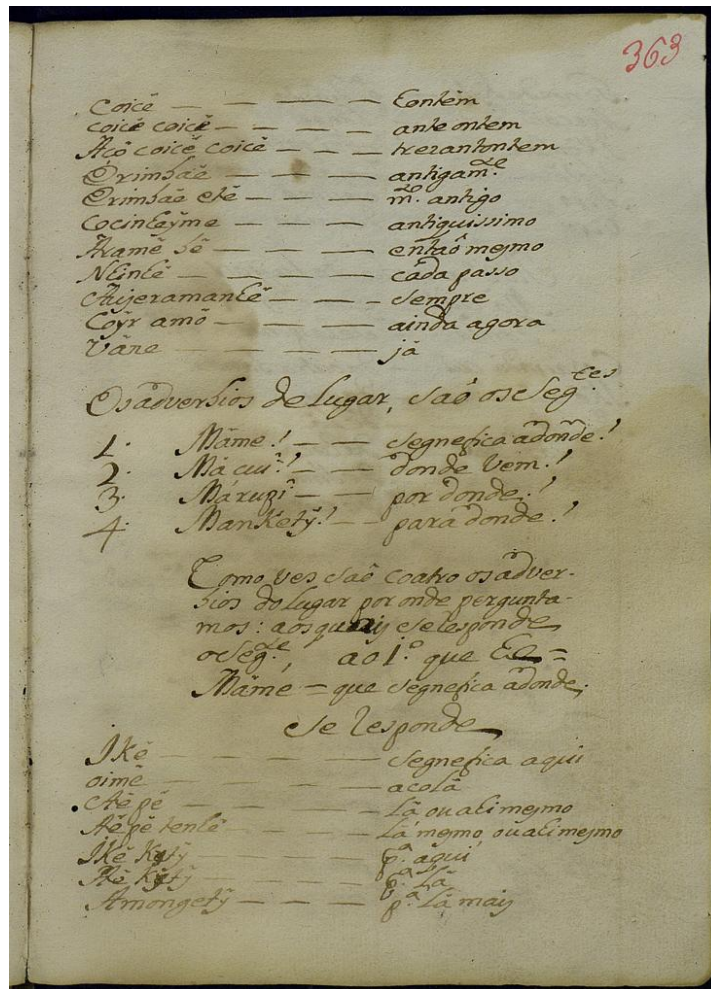 363
Coicê — — — — Eontêm
coicê coicê — — — — ante ontem
Açô coicê coicê — — — trezantontem
Erimbãe — — — — antigam.te
Erimbãe etê — — — — m.to antigo
Cocinteỹme — — — antiquissimo
Aramê bê — — — — entaô mesmo
Nteintê — — — — cada passo
Aujeramantê — — — sempre
Coỹr amô — — — — ainda agora
Vâne — — — — já
Os adverbios de lugar, saô os seg.tes
1. Mâme! — — segnefica adonde!
2. Mácuî! — — donde vem!
3. Márupî — — por donde!
4. Manketỹ! — — para donde!
Como ves saô coatro os adver-
bios do lugar por onde pergunta-
mos: aos quaiis se lesponde
o seg.te, ao 1.o que Ee =
Mâme = que segnefica adonde,
Se lesponde
Ikê — — — — segnefica aqui
oimê — — — — acolâ
Aêpê — — — — lâ ou ali mesmo
Aêpê tenlê — — — lá mesmo, ou ali mesmo
Ikê Ketỹ — — — p.a aqui
Aê Kytỹ — — — p.a Lâ
Amongetỹ — — — p.a Lâ maiis